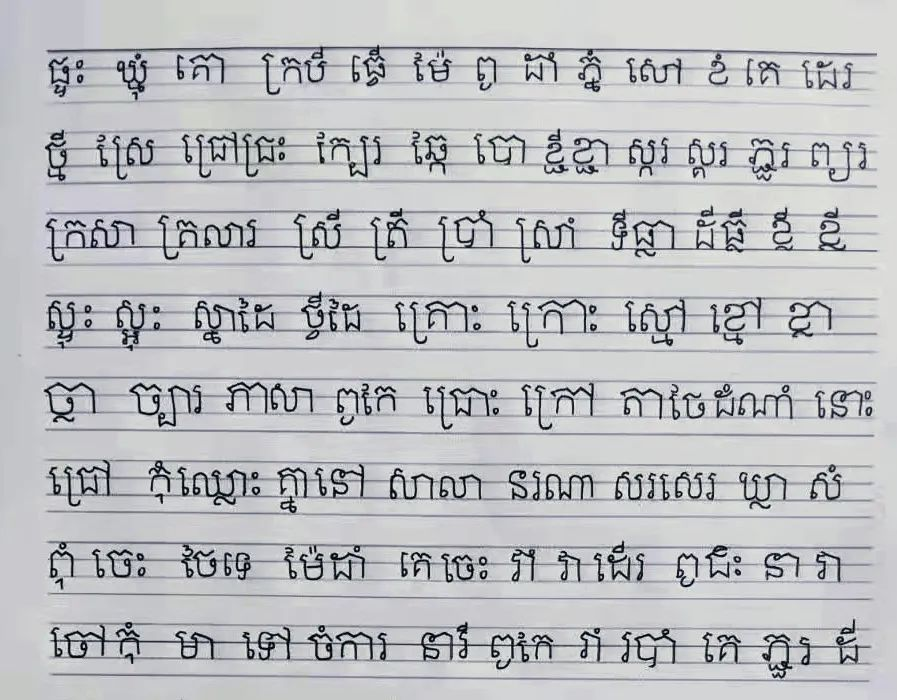 ផ្ទះ ឃ្មុំ គោ ក្របី ធ្វើ ម៉ែ ពូ ដាំ ភ្នំ សៅ ខំ គេ ដេរ
ថ្មី ស្រែ ជ្រៅជ្រះ ក្បែរ ឆ្កែ បោ ខ្ចីខ្ចា ស្ករ ស្គរ ភ្ជួរ ព្យួរ
ក្រសា គ្រលារ ស្រី ត្រី ប្រាំ ស្រាំ ទីធ្លា ដីធ្លី ខ្លី ខ្លី
ស្ទុះ ស្អុះ ស្នាដៃ ថ្វីដៃ គ្រោះ ក្រោះ ស្មៅ ខ្មៅ ខ្លា
ថ្លា ច្បារ ភាសា ពូកែ ជ្រោះ ក្រៅ តាចៃដំណាំ នោះ
ជ្រៅ កុំឈ្លោះ គ្នានៅ សាលា នរណា សរសេរ ឃ្លា សំ
ពុំ ចេះ ចៃទេ ម៉ែដាំ គេចេះ រាំ រា ដើរ ពូជិះ នា រា
ចៅកុំ មា ទៅ ចំការ នារី ពូកែ រាំ របាំ គេ ភ្ជួរ ដី